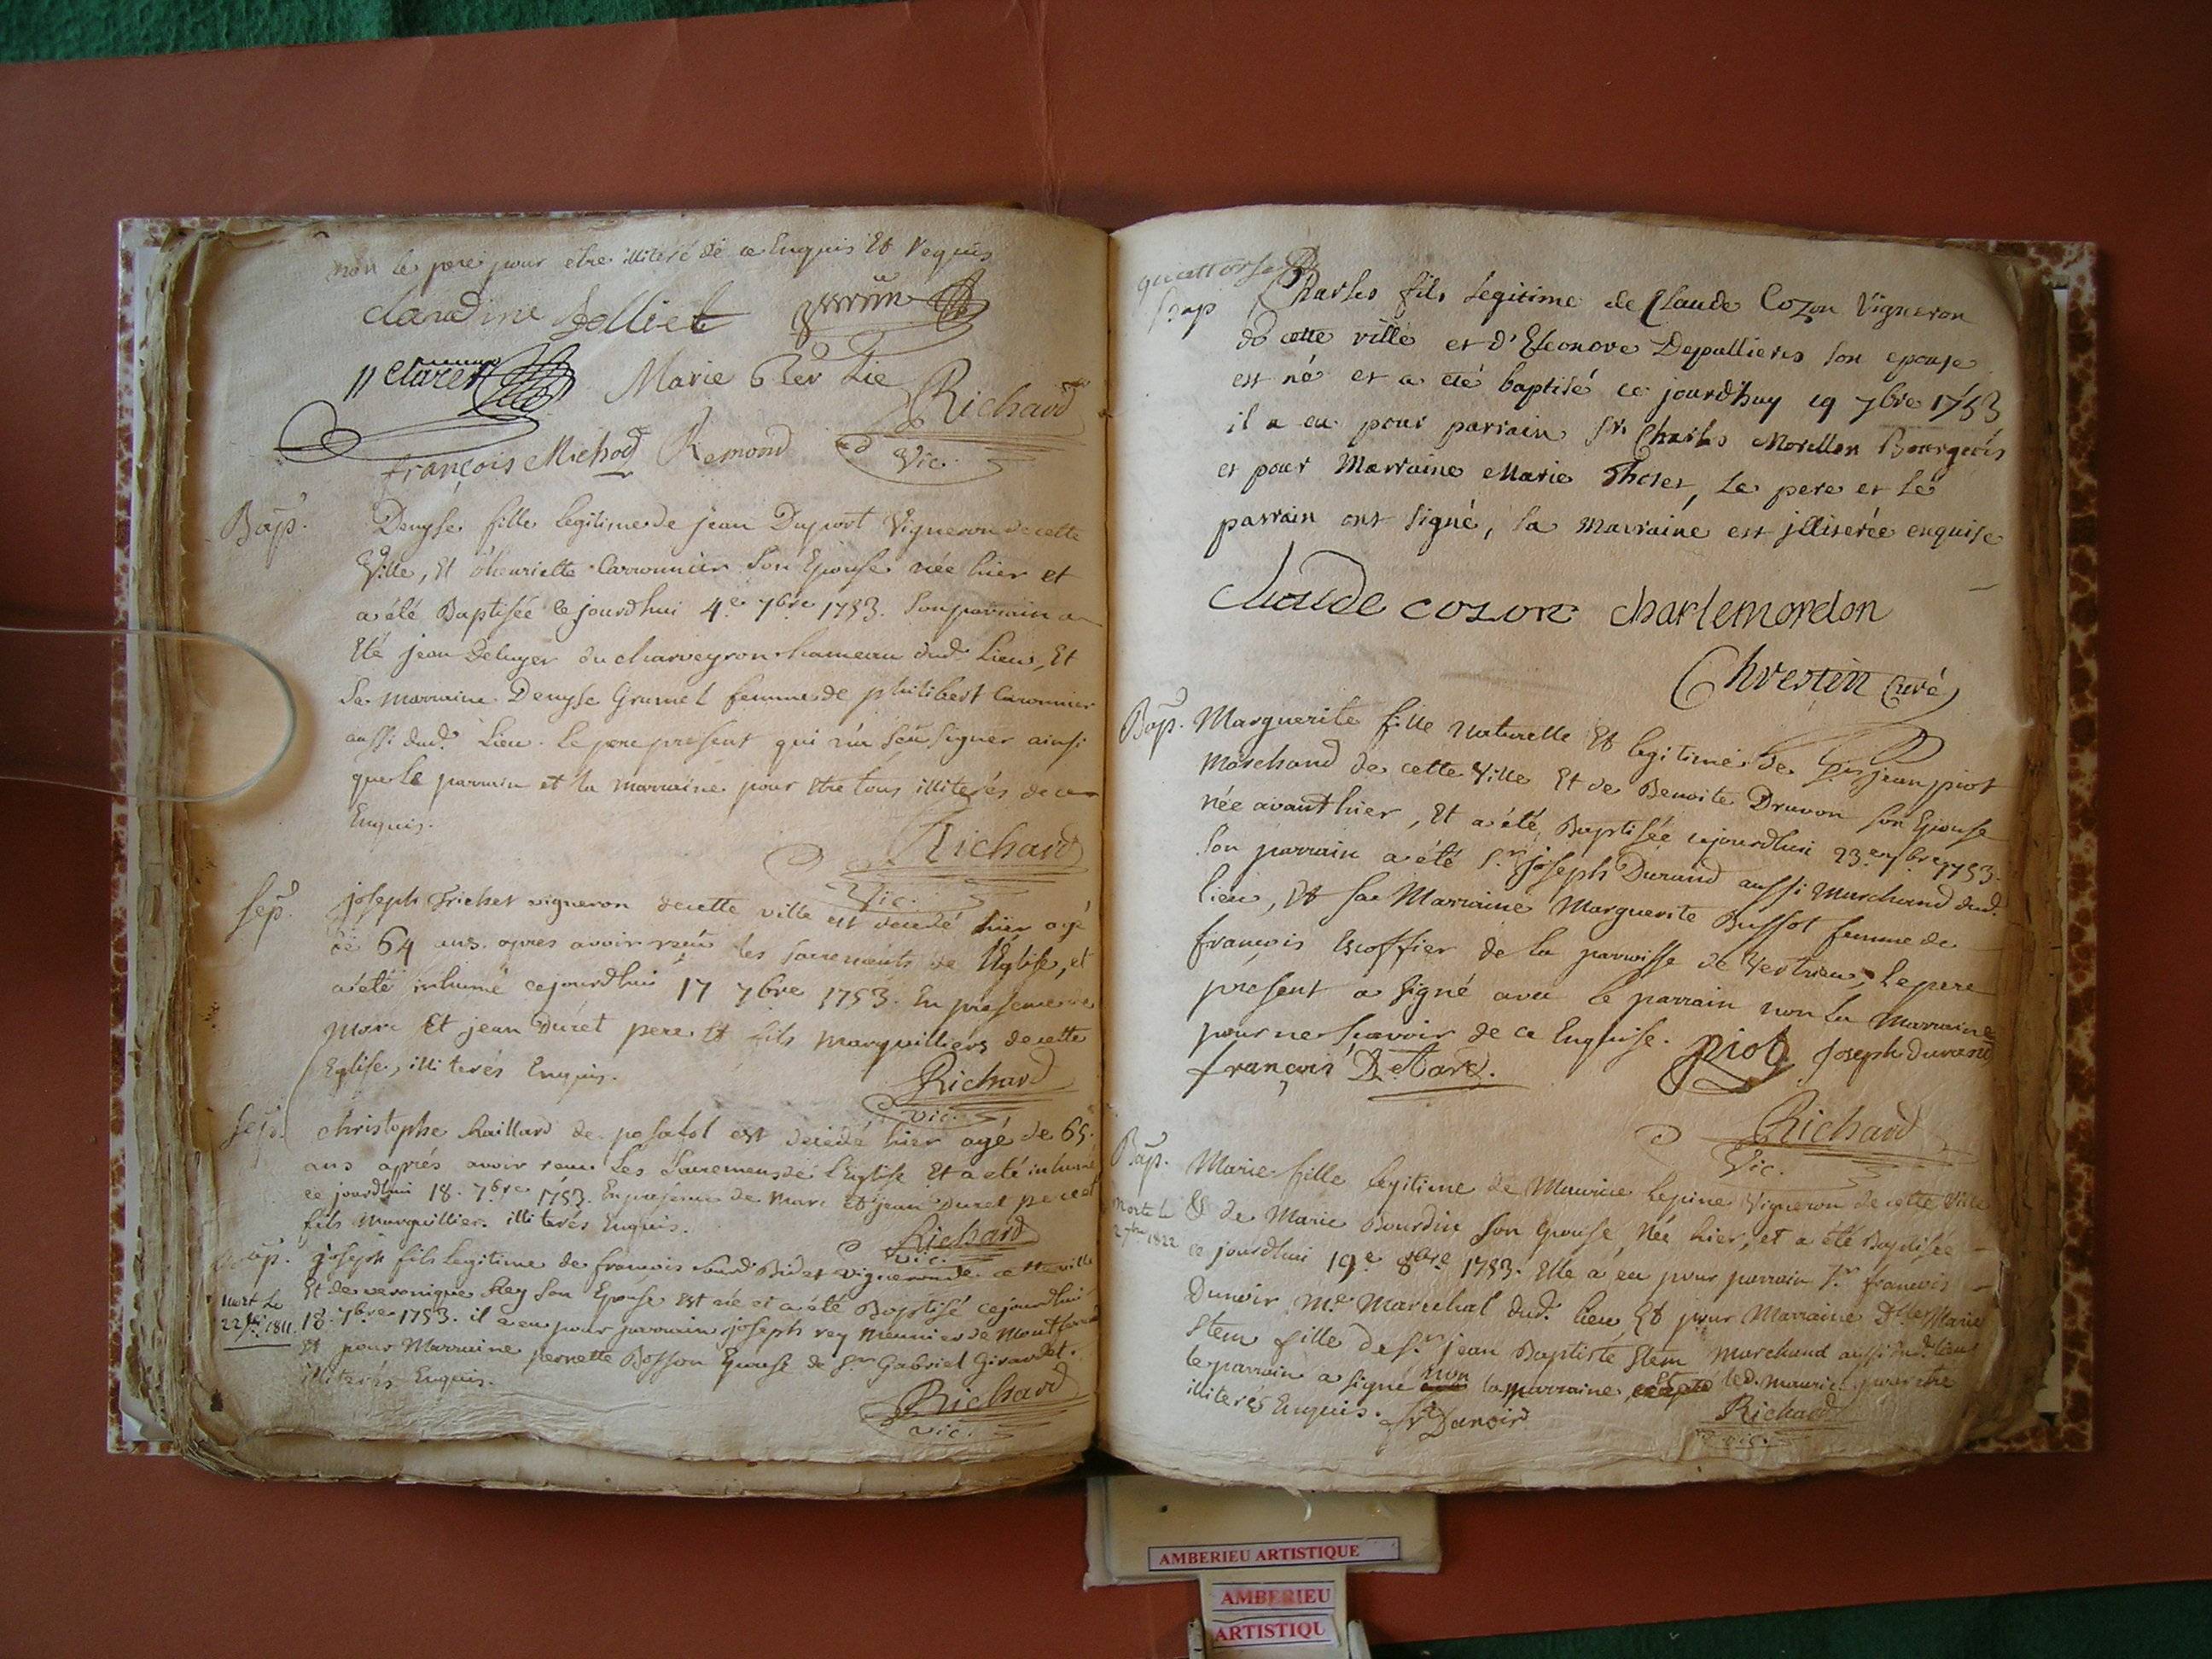 non le pere pour etre illiteré de ce Enquis Et Requis
claudine Jolliet
Claret
Marie
Richard
Vic.
françois Michod Remond
Bap.
Denyse fille legitime de jean Duport Vigneron de cette
Ville, Et d'henriette Carronnier Son Epouse née hier et
a été Baptisée ce jourdhui 4e 7bre 1753. Son parrain a
Eté jean Deluyer du charveyron hameau dud. Lieu, Et
Sa marraine Denyse Grumel femme de philibert Caronnier
aussi dud. Lieu. le pere présent qui n'a Sçu signer ainsi
que le parrain et la marraine pour etre tous illiterés de ce
Enquis.
Richard
Vic.
Sep.
joseph Trichet vigneron de cette ville est decedé hier agé
de 64 ans apres avoir reçu les sacrements de l'Eglise, et
a été inhumé cejourdhui 17 7bre 1753. En présence de
Marc Et jean Duret pere Et fils Marguilliers de cette
Eglise, illiterés Enquis.
Richard
vic.
Sep.
christophe Chaillard de est decedé hier agé de 65
ans aprés avoir reçu Les Sacremens de l'Eglise Et a eté inhumé
ce jourdhui 18. 7bre 1753. En présence de Marc Et jean Duret pere et
fils Marguillier. illiterés Enquis.
Richard
vic.
Bap.
joseph fils legitime de francois Bidet vigneron de cette ville
Et de veronique Rey Son Epouse Est né et a été Baptisé cejourdhui
mort Le
22 1811.
18. 7bre 1753. il a eu pour parrain joseph rey Meunier de Montferrand
Et pour Marraine pernette Bosson Epouse de Sr Gabriel Girardet.
illiterés Enquis.
Richard
vic.
Bap
Charles fils legitime de Claude Cozon Vigneron
de cette ville et d'Eleonore Depallieres son epouse
est né et a eté baptisé ce jourdhuy 19 7bre 1753
il a eu pour parrain Sr Charles Morellon Bourgeois
et pour Marraine Marie Thoset, Le pere et Le
parrain ont signé, la marraine est illiterée enquise
Claude cozon charlemorelon
Chrestin Curé
Bap.
Marguerite fille naturelle Et legitime de Sr jean piot
Marchand de cette Ville Et de Benoite Druvon son Epouse
née avant hier, Et a été Baptisée cejourdhui 23e 7bre 1753.
Son parrain a été S.r joseph Durand aussi Marchand dud.
lieu, Et sa Marraine Marguerite Bussot femme de
françois Escoffier de la parroisse de Vertrieu, Le pere
present a signé avec le parrain non la Marraine
pour ne sçavoir de ce Enquise. piot Joseph durand
françois Detard.
Richard
Vic.
Bap.
Marie fille legitime de Maurice Lepine Vigneron de cette Ville
Morte le
2 1822
Et de Marie Bourdin son Epouse, Née hier, et a été Baptisée
ce jourdhui 19e 8bre 1753. Elle a eu pour parrain S.r francois
Dunoir Me Marechal dud. lieu Et pour Marraine Dlle Marie
Stem fille de Sr jean Baptiste Stem Marchand aussi dud. lieu
le parrain a signé non la marraine, led. Maurice pour etre
illiterés Enquis.
Richard
vic.
AMBERIEU ARTISTIQUE
AMBERIEU
ARTISTIQU